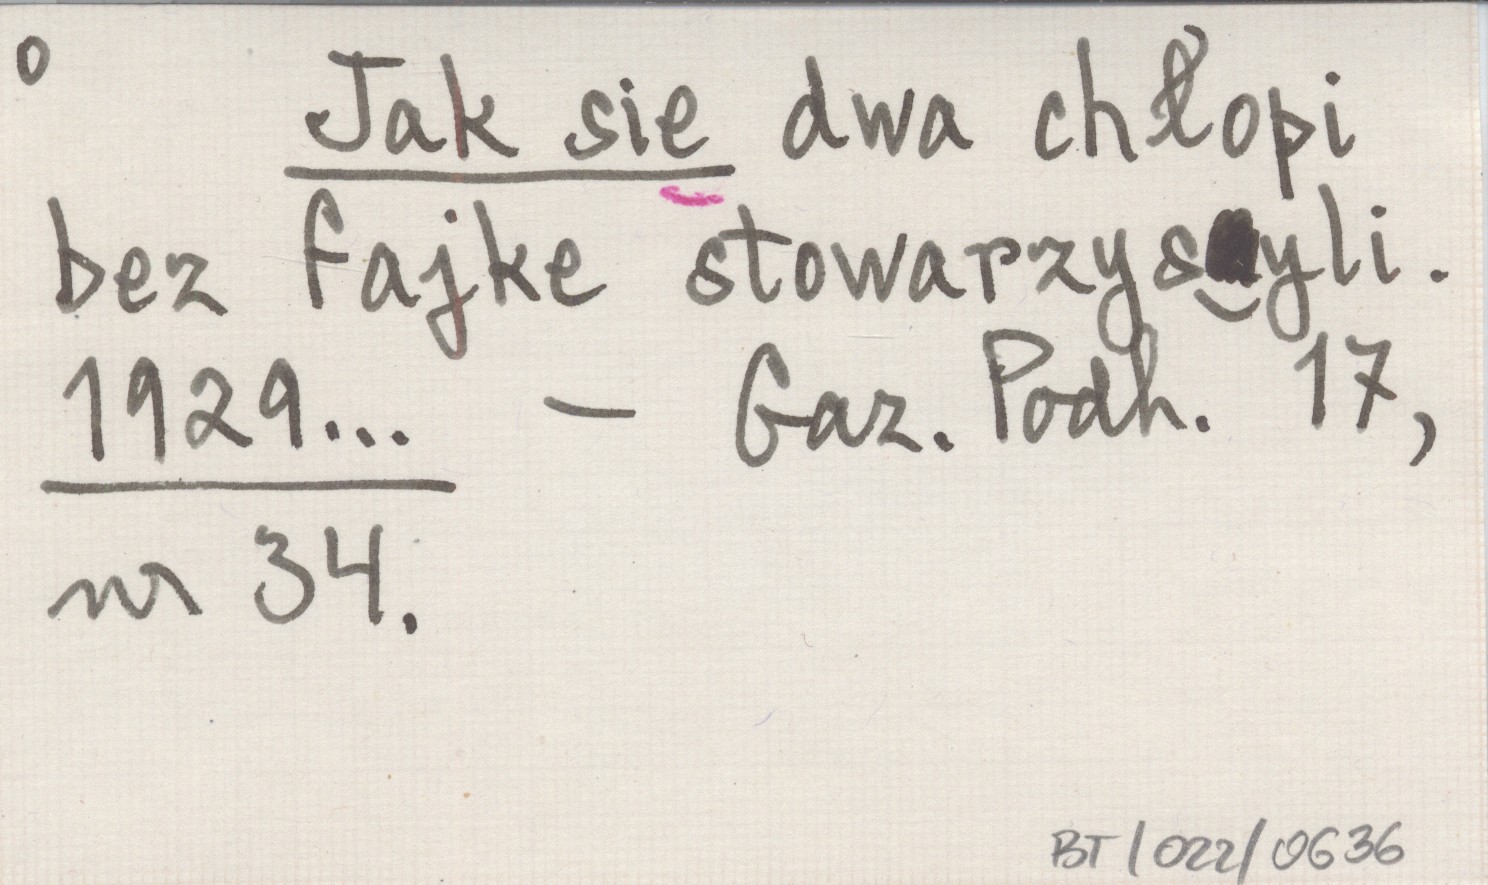 0
Jak sie dwa chłopi
bez fajke stowarzysyli.
1929... — Gaz. Podh. 17,
nr 34.
BT/022/0636